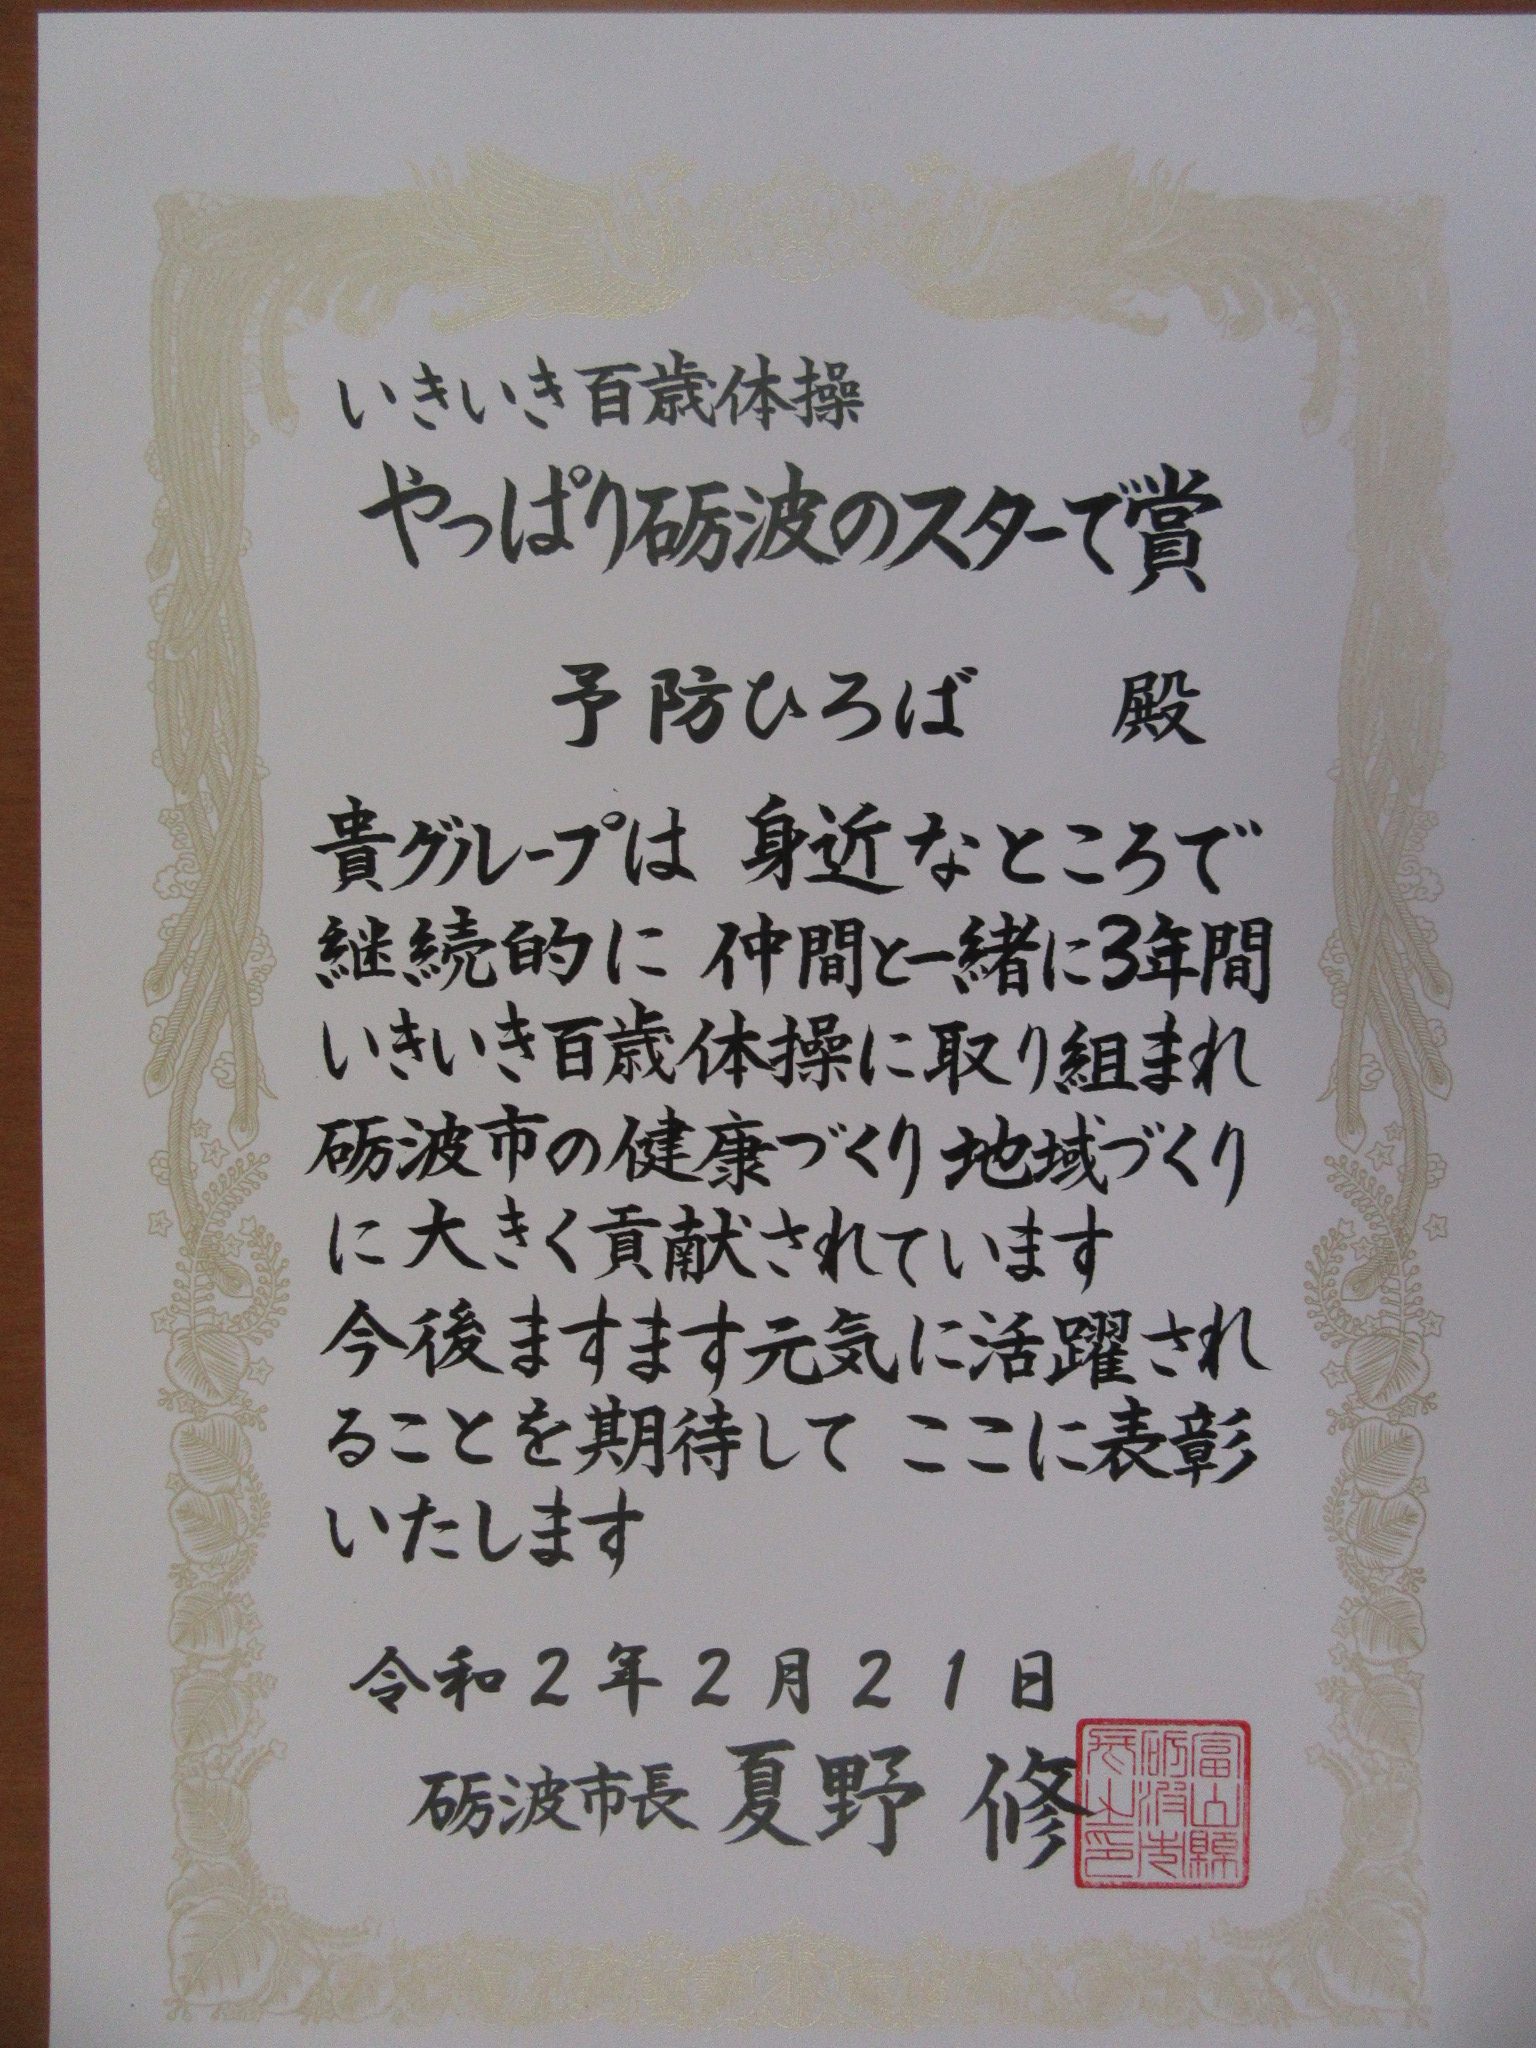 いきいき百歳体操
やっぱり砺波のスターで賞
予防ひろば 殿
貴グループは 身近なところで
継続的に 仲間と一緒に3年間
いきいき百歳体操に取り組まれ
砺波市の健康づくり 地域づくり
に大きく貢献されています
今後ますます元気に活躍され
ることを期待して ここに表彰
いたします
令和2年2月21日
砺波市長 夏野 修
富山縣
砺波市
長之印